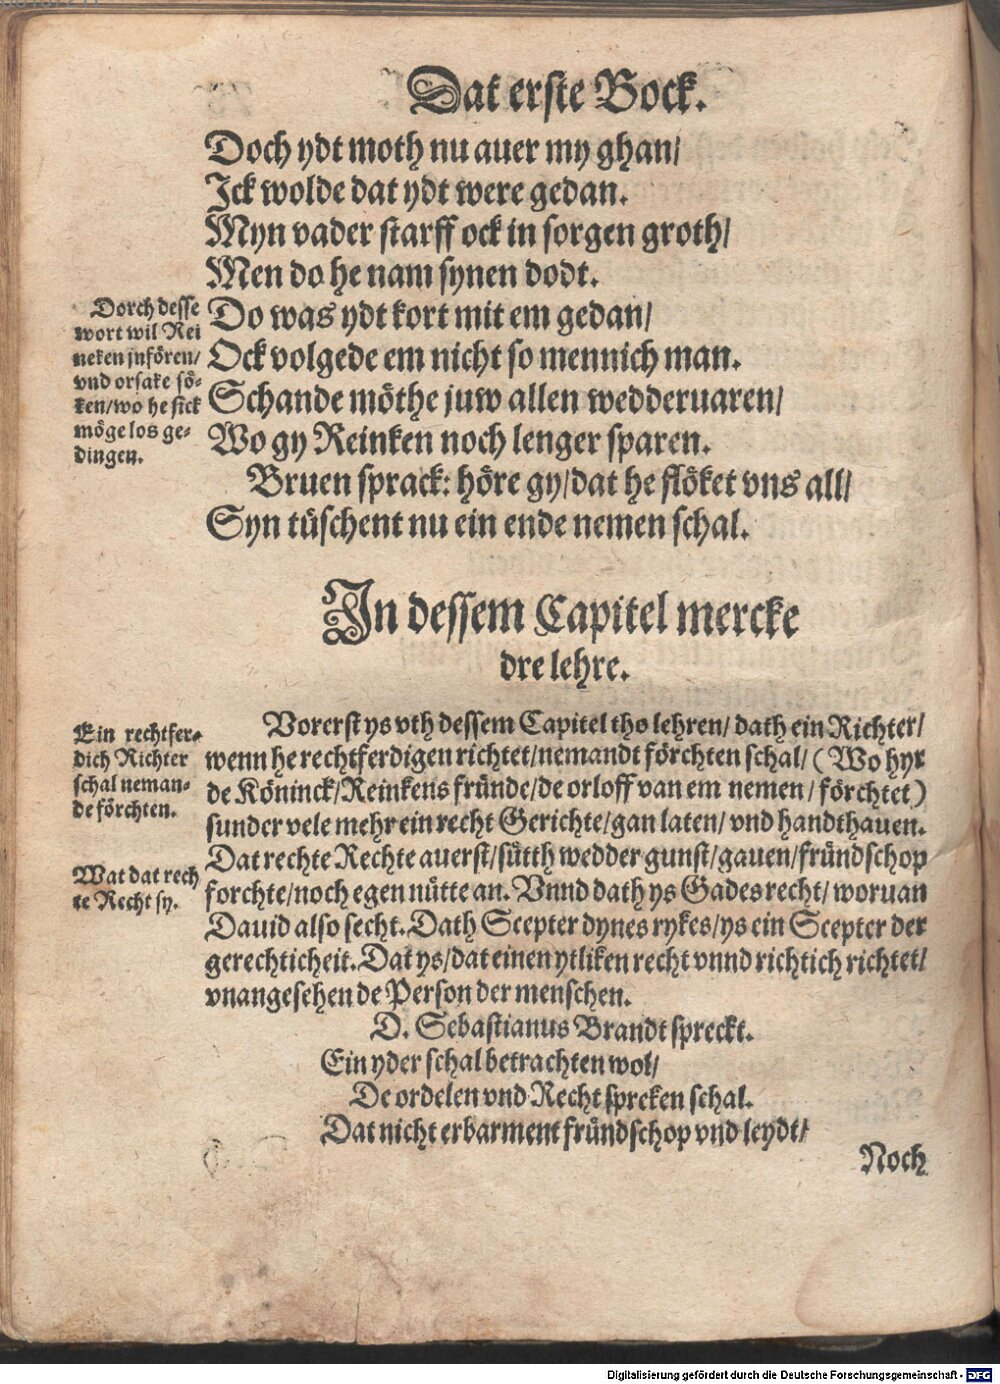 Dat erste Bock.
Doch ydt moth nu auer my ghan/
Ick wolde dat ydt were gedan.
Myn vader starff ock in sorgen groth/
Men do he nam synen dodt.
Do was ydt kort mit em gedan/
Ock volgede em nicht so mennich man.
Schande möthe juw allen wedderuaren/
Wo gy Reinken noch lenger sparen.
Bruen sprack: höre gy/dat he flöket vns all/
Syn tüschent nu ein ende nemen schal.
Dorch desse
wort wil Rei
neken jnfören/
vnd orsake sö-
ken/wo he sick
möge los ge-
dingen.
In dessem Capitel mercke
dre lehre.
Vorerst ys vth dessem Capitel tho lehren/ dath ein Richter/
wenn he rechtferdigen richtet/nemandt förchten schal/ (Wo hyr
de Köninck/Reinkens fründe/de orloff van em nemen/förchtet)
sunder vele mehr ein recht Gerichte/gan laten/ vnd handthauen.
Dat rechte Rechte auerst/sütth wedder gunst/gauen/fründschop
forchte/noch egen nütte an. Vnnd dath ys Gades recht/ woruan
Dauid also secht. Dath Scepter dynes rykes/ys ein Scepter der
gerechticheit. Dat ys/dat einen ytliken recht vnnd richtich richtet/
vnangesehen de Person der menschen.
Ein rechtfer-
dich Richter
schal neman-
de förchten.
Wat dat rech
te Recht sy.
D. Sebastianus Brandt spreckt.
Ein yder schal betrachten wol/
De ordelen vnd Recht spreken schal.
Dat nicht erbarment fründschop vnd leydt/
Noch
Digitalisierung gefördert durch die Deutsche Forschungsgemeinschaft - DFG